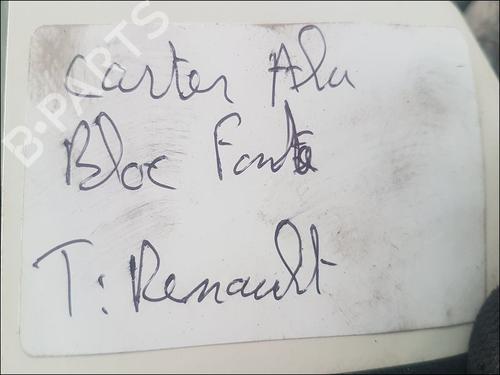 B-PARTS
Carter Alu
Bloc Fonte
T: Renault